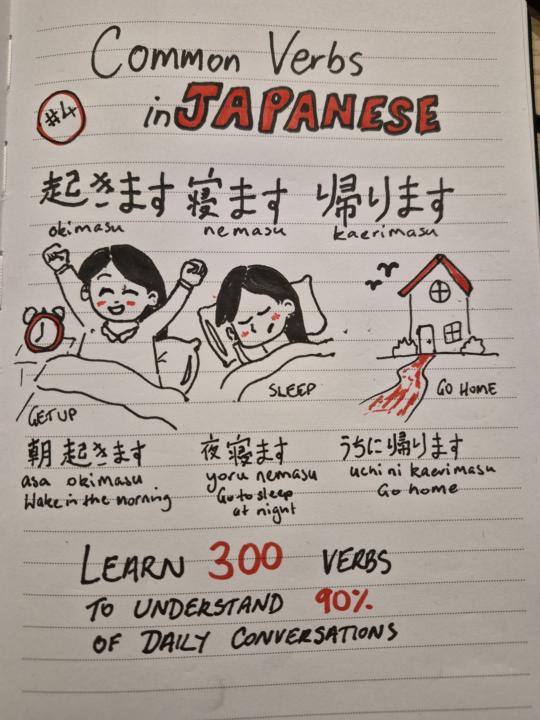 Common Verbs
#4
in JAPANESE
起きます 寝ます 帰ります
okimasu nemasu kaerimasu
GET UP
SLEEP
GO HOME
朝 起きます
asa okimasu
Wake in the morning
夜 寝ます
yoru nemasu
Go to sleep
at night
うちに 帰ります
uchi ni kaerimasu
Go home
LEARN 300 VERBS
TO UNDERSTAND 90%
OF DAILY CONVERSATIONS